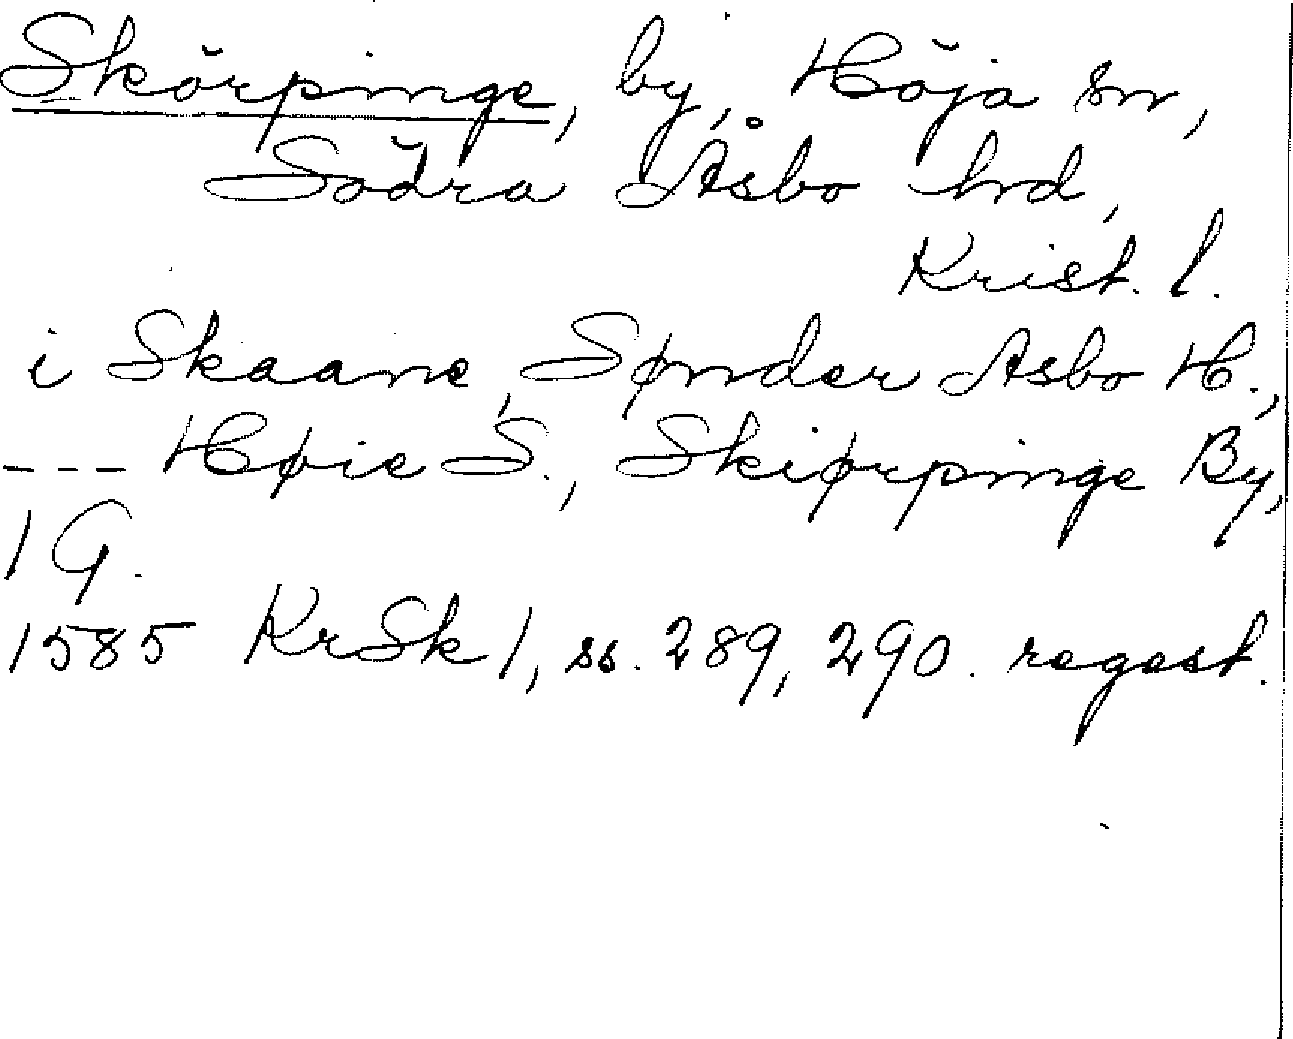 Skörpinge, by, Höja sn,
Södra Åsbo hrd,
Krist. l.
i Skaane, Sønder Asbo H.,
--- Høie S., Skiørpinge By,
1 G.
1585 KrSk 1, ss. 289, 290. regest.